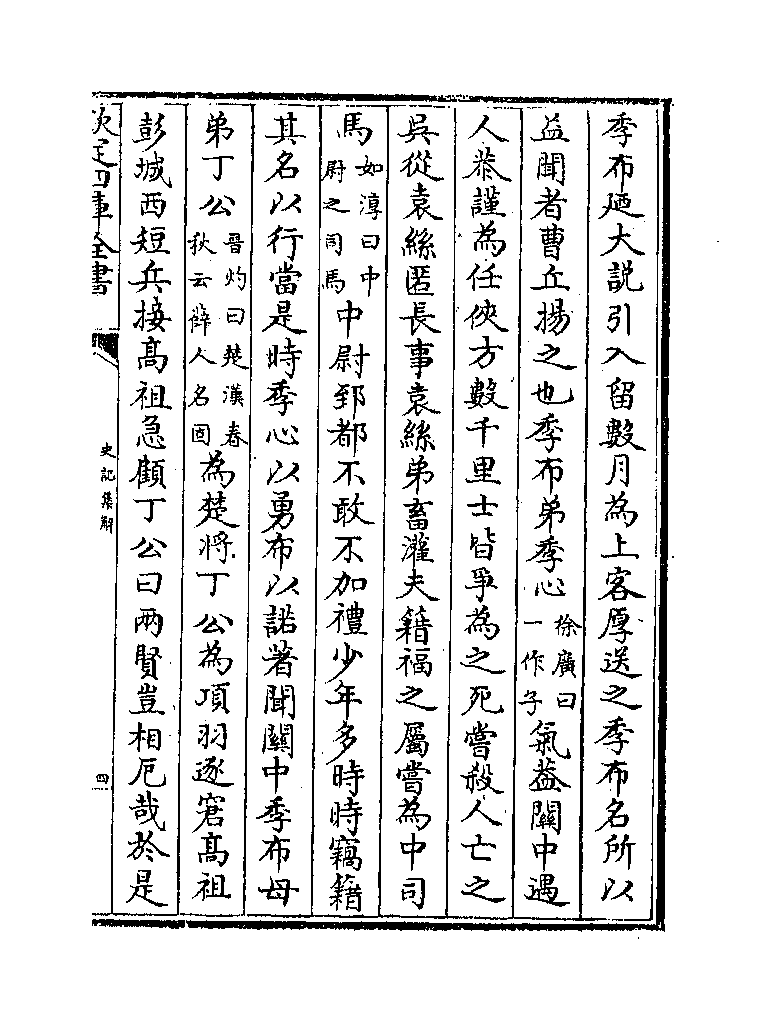 季布廼大說引入留數月為上客厚送之季布名所以
益聞者曹丘揚之也季布弟季心徐廣曰一作子氣葢關中遇
人恭謹為任俠方數千里士皆爭為之死嘗殺人亡之
吳從袁絲匿長事袁絲弟畜灌夫籍福之屬嘗為中司
馬如淳曰中尉之司馬中尉郅都不敢不加禮少年多時時竊籍
其名以行當是時季心以勇布以諾著聞關中季布母
弟丁公晉灼曰楚漢春秋云薛人名固為楚將丁公為項羽逐窘高祖
彭城西短兵接高祖急顧丁公曰兩賢豈相厄哉於是
欽定四庫全書
史記集解
四